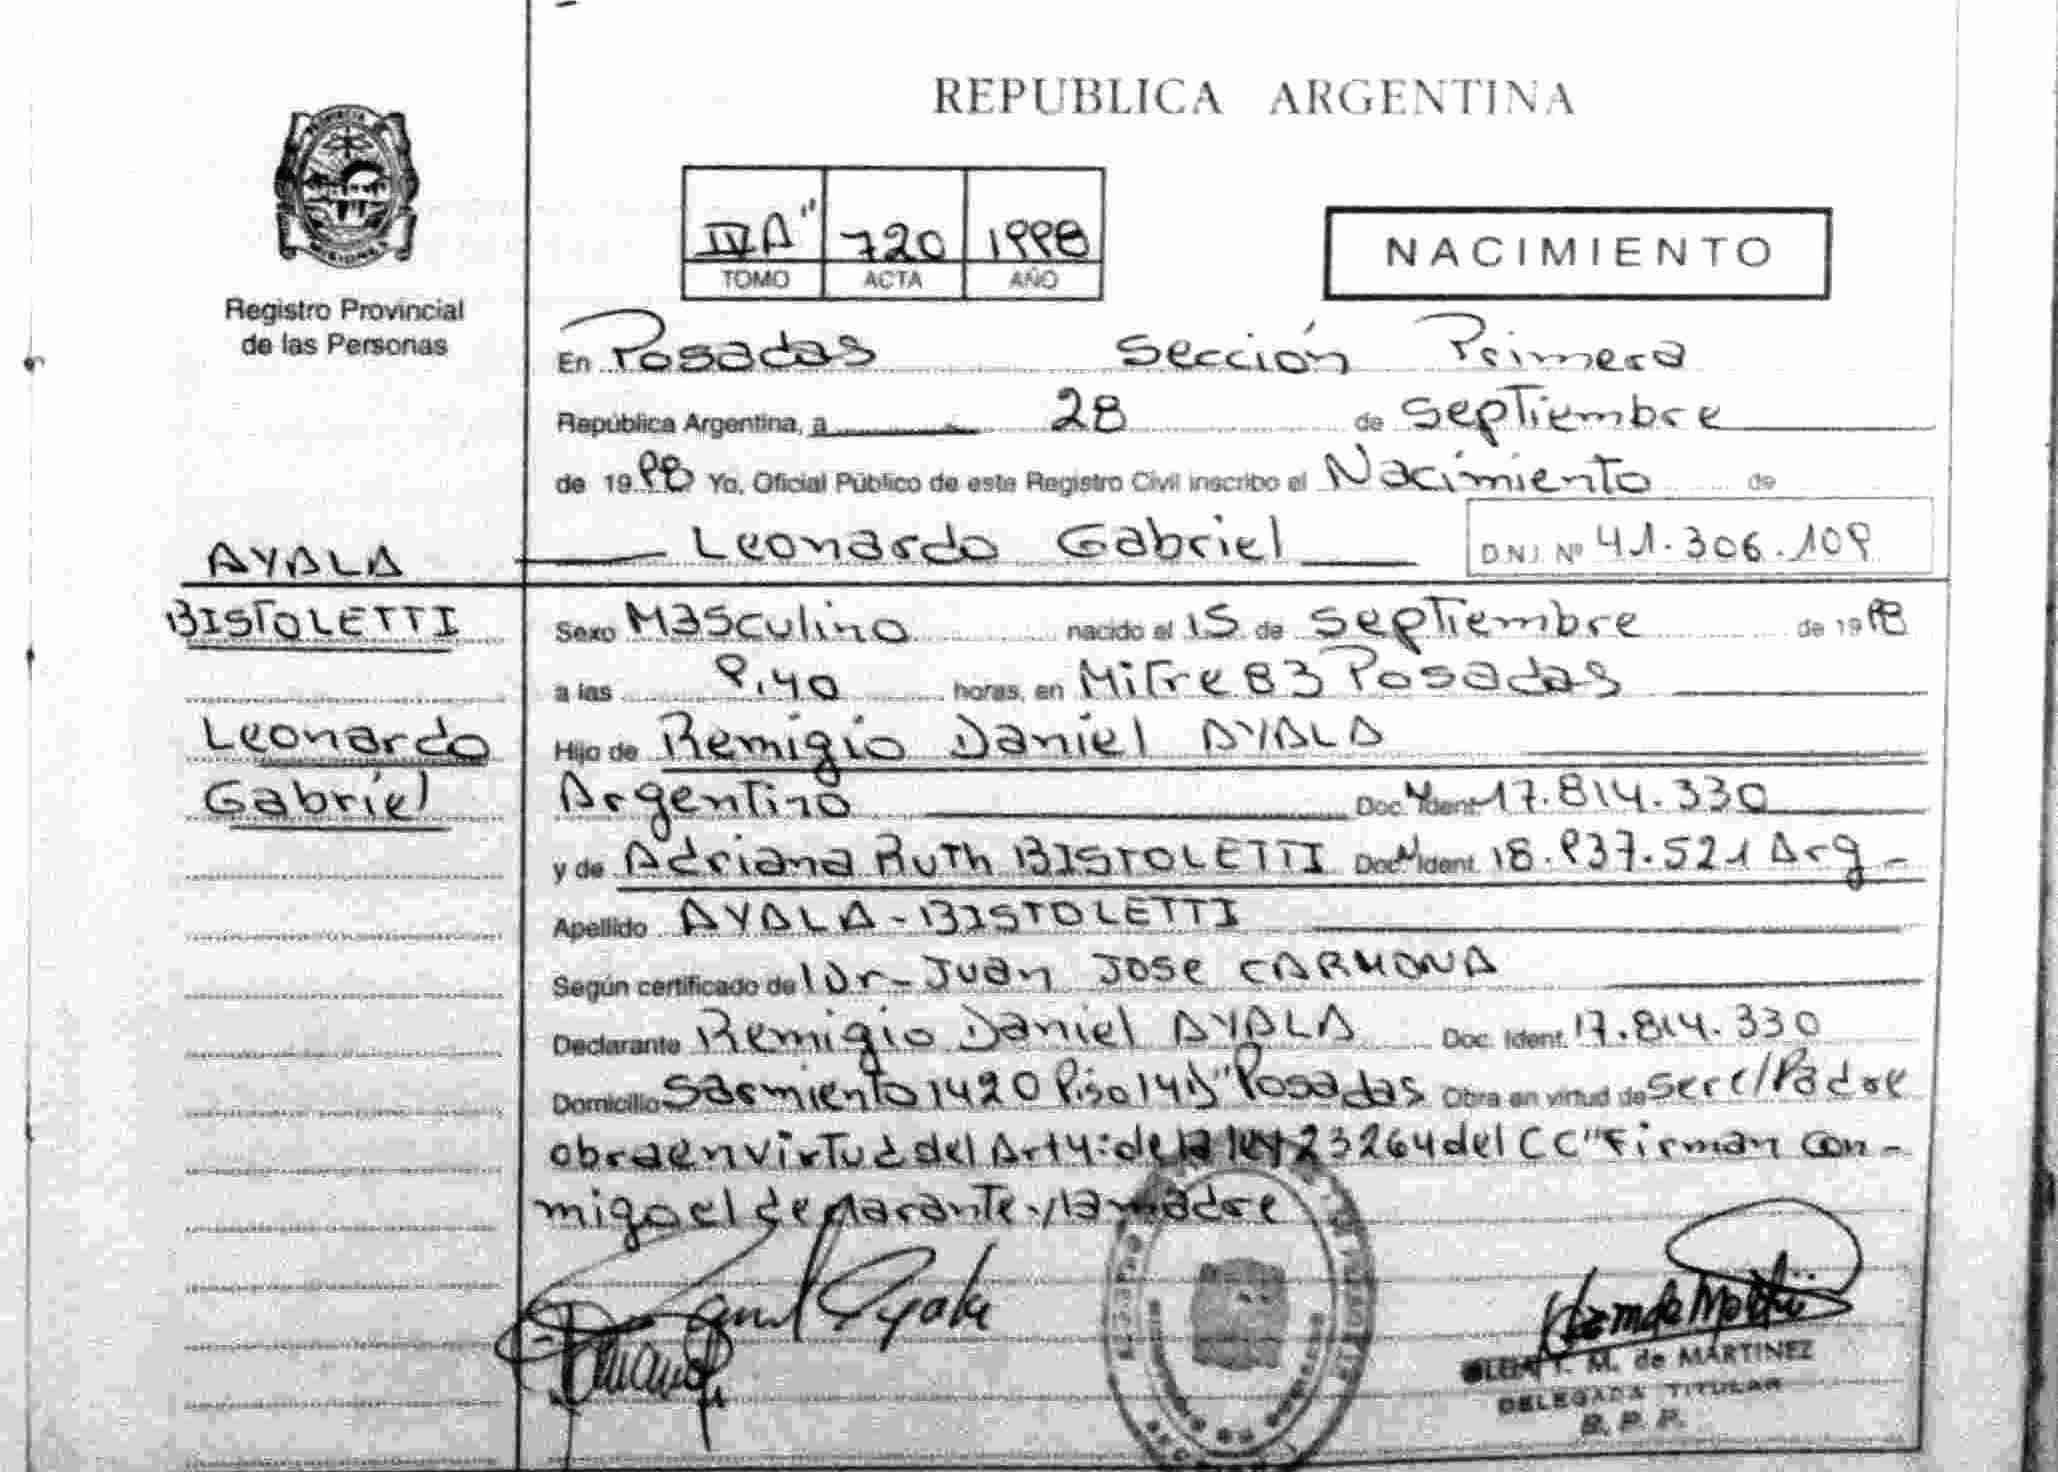 REPUBLICA ARGENTINA
IV A" 720 1998
TOMO ACTA AÑO
NACIMIENTO
Registro Provincial
de las Personas
En Posadas Sección Primera
República Argentina, a 28 de Septiembre
de 1998 Yo, Oficial Público de este Registro Civil inscribo el Nacimiento de
Leonardo Gabriel
D.N.I. Nº 41.306.109
AYALA
BISTOLETTI
Leonardo
Gabriel
Sexo Masculino nacido el 15 de Septiembre de 1998
a las 9,40 horas, en Mitre 83 Posadas
Hijo de Remigio Daniel AYALA
Argentino Doc. Ident. 17.814.330
y de Adriana Ruth BISTOLETTI Doc. Ident. 18.937.521 Arg-
Apellido AYALA-BISTOLETTI
Según certificado de l Dr- Juan Jose CARMONA
Declarante Remigio Daniel AYALA Doc. Ident. 17.814.330
Domicilio Sarmiento 1420 Piso 14 Posadas Obra en virtud de ser el Padre
obra en virtud del Art 4: de la ley 23264 del CC" Firman con-
migo el declarante y la madre
Ayala
M. de MARTINEZ
DELEGADA TITULAR
R. P. P.